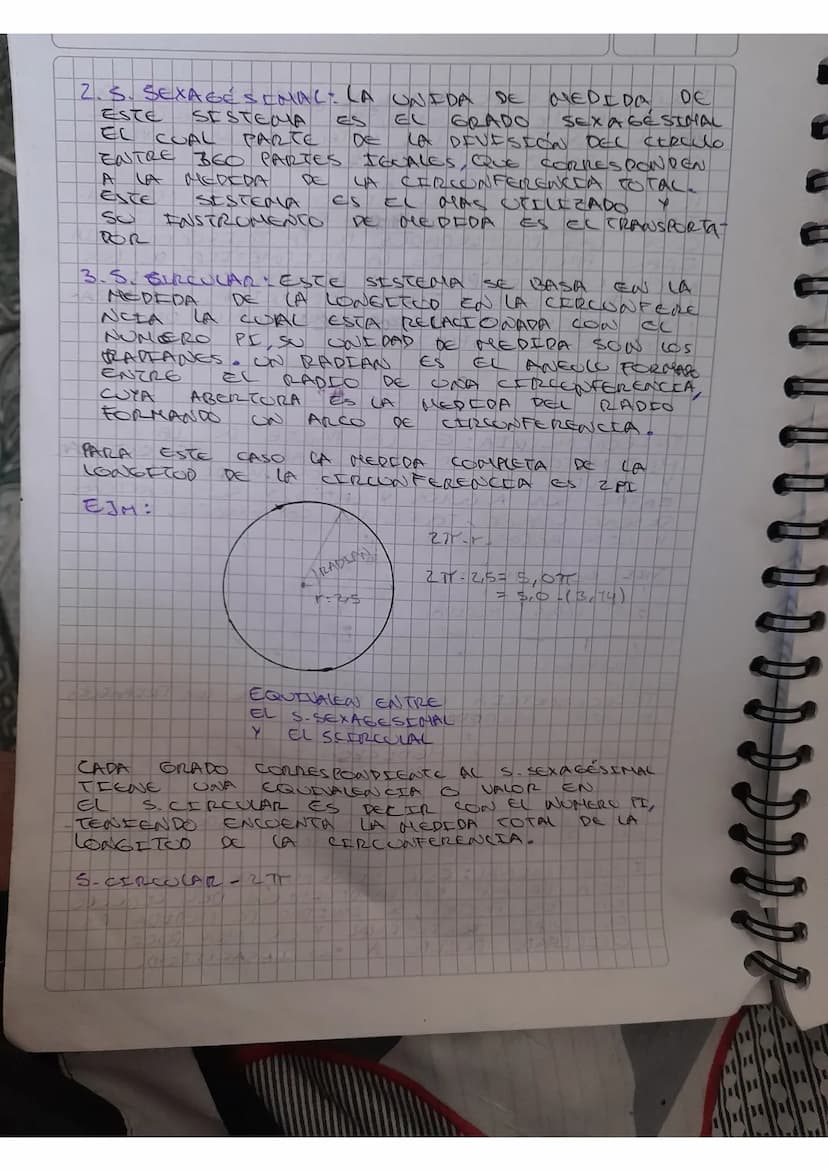 2. S. SEXAGÉSIMAL: LA UNIDA DE MEDIDA DE
ESTE SISTEMA ES EL GRADO SEXAGÉSIMAL
EL CUAL PARTE DE LA DIVISIÓN DEL CIRCULO
ENTRE 360 PARTES IGUALES, QUE CORRESPONDEN
A LA MEDIDA DE LA CIRCONFERENCIA TOTAL.
ESTE SISTEMA ES EL MAS UTILIZADO Y
SU INSTRUMENTO DE MEDIDA ES EL TRANSPORTA-
DOR
3. S. CIRCULAR: ESTE SISTEMA SE BASA EN LA
MEDIDA DE LA LONGITUD EN LA CIRCONFERE
NCIA LA CUAL ESTA RELACIONADA CON EL
NUMERO PI, SU UNIDAD DE MEDIDA SON LOS
RADIANES. UN RADIAN ES EL ANGULO FORMADO
ENTRE EL RADIO DE UNA CIRCONFERENCIA,
CUYA ABERTURA ES LA MEDIDA DEL RADIO
FORMANDO UN ARCO DE CIRCONFERENCIA.
PARA ESTE CASO LA MEDIDA COMPLETA DE LA
LONGITUD DE LA CIRCONFERENCIA ES 2PI
EJM:
2π.r
(RADIAN)
2π . 2,5 = 5,0π
r=2,5
= 5,0 . (3,14)
EQUIVALEN ENTRE
EL S. SEXAGESIMAL
Y EL SCIRCULAL
CADA GRADO CORRESPONDIENTE AL S. SEXAGÉSIMAL
TIENE UNA EQUIVALENCIA O VALOR EN
EL S. CIRCULAR ES DECIR CON EL NUMERO PI,
TENIENDO ENCUENTA LA MEDIDA TOTAL DE LA
LONGITUD DE LA CIRCONFERENCIA.
S. CIRCULAR - 2π